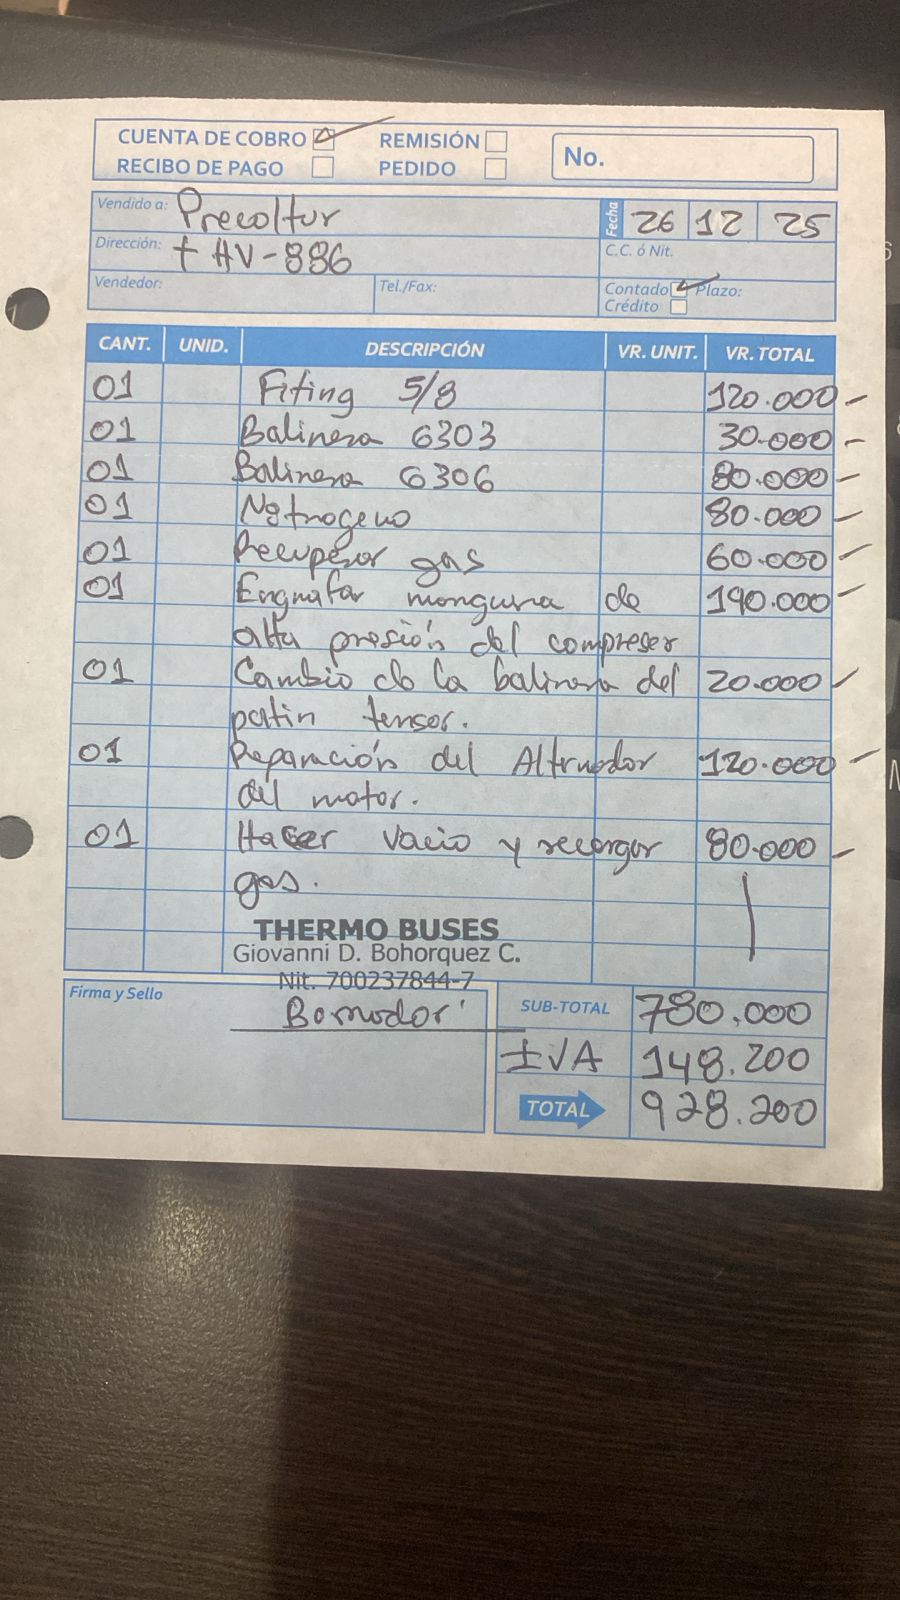 CUENTA DE COBRO REMISIÓN No.
RECIBO DE PAGO PEDIDO
Vendido a: Precoltur Fecha 26 12 25
Dirección: THV-886 C.C. ó Nit.
Vendedor: Tel./Fax: Contado Plazo:
Crédito
CANT. UNID. DESCRIPCIÓN VR. UNIT. VR. TOTAL
01 Fiting 5/8 120.000
01 Balinera 6303 30.000
01 Balinera 6306 80.000
01 Nitrogeno 80.000
01 Recuperar gas 60.000
01 Engrafar manguera de 190.000
alta presión del compresor
01 Cambio de la balinera del 20.000
patin tensor.
01 Reparación del Alternador 120.000
del motor.
01 Hacer vacio y recargar 80.000
gas.
THERMO BUSES
Giovanni D. Bohorquez C.
Nit. 700237844-7
Firma y Sello
SUB-TOTAL 780.000
IVA 148.200
TOTAL 928.200